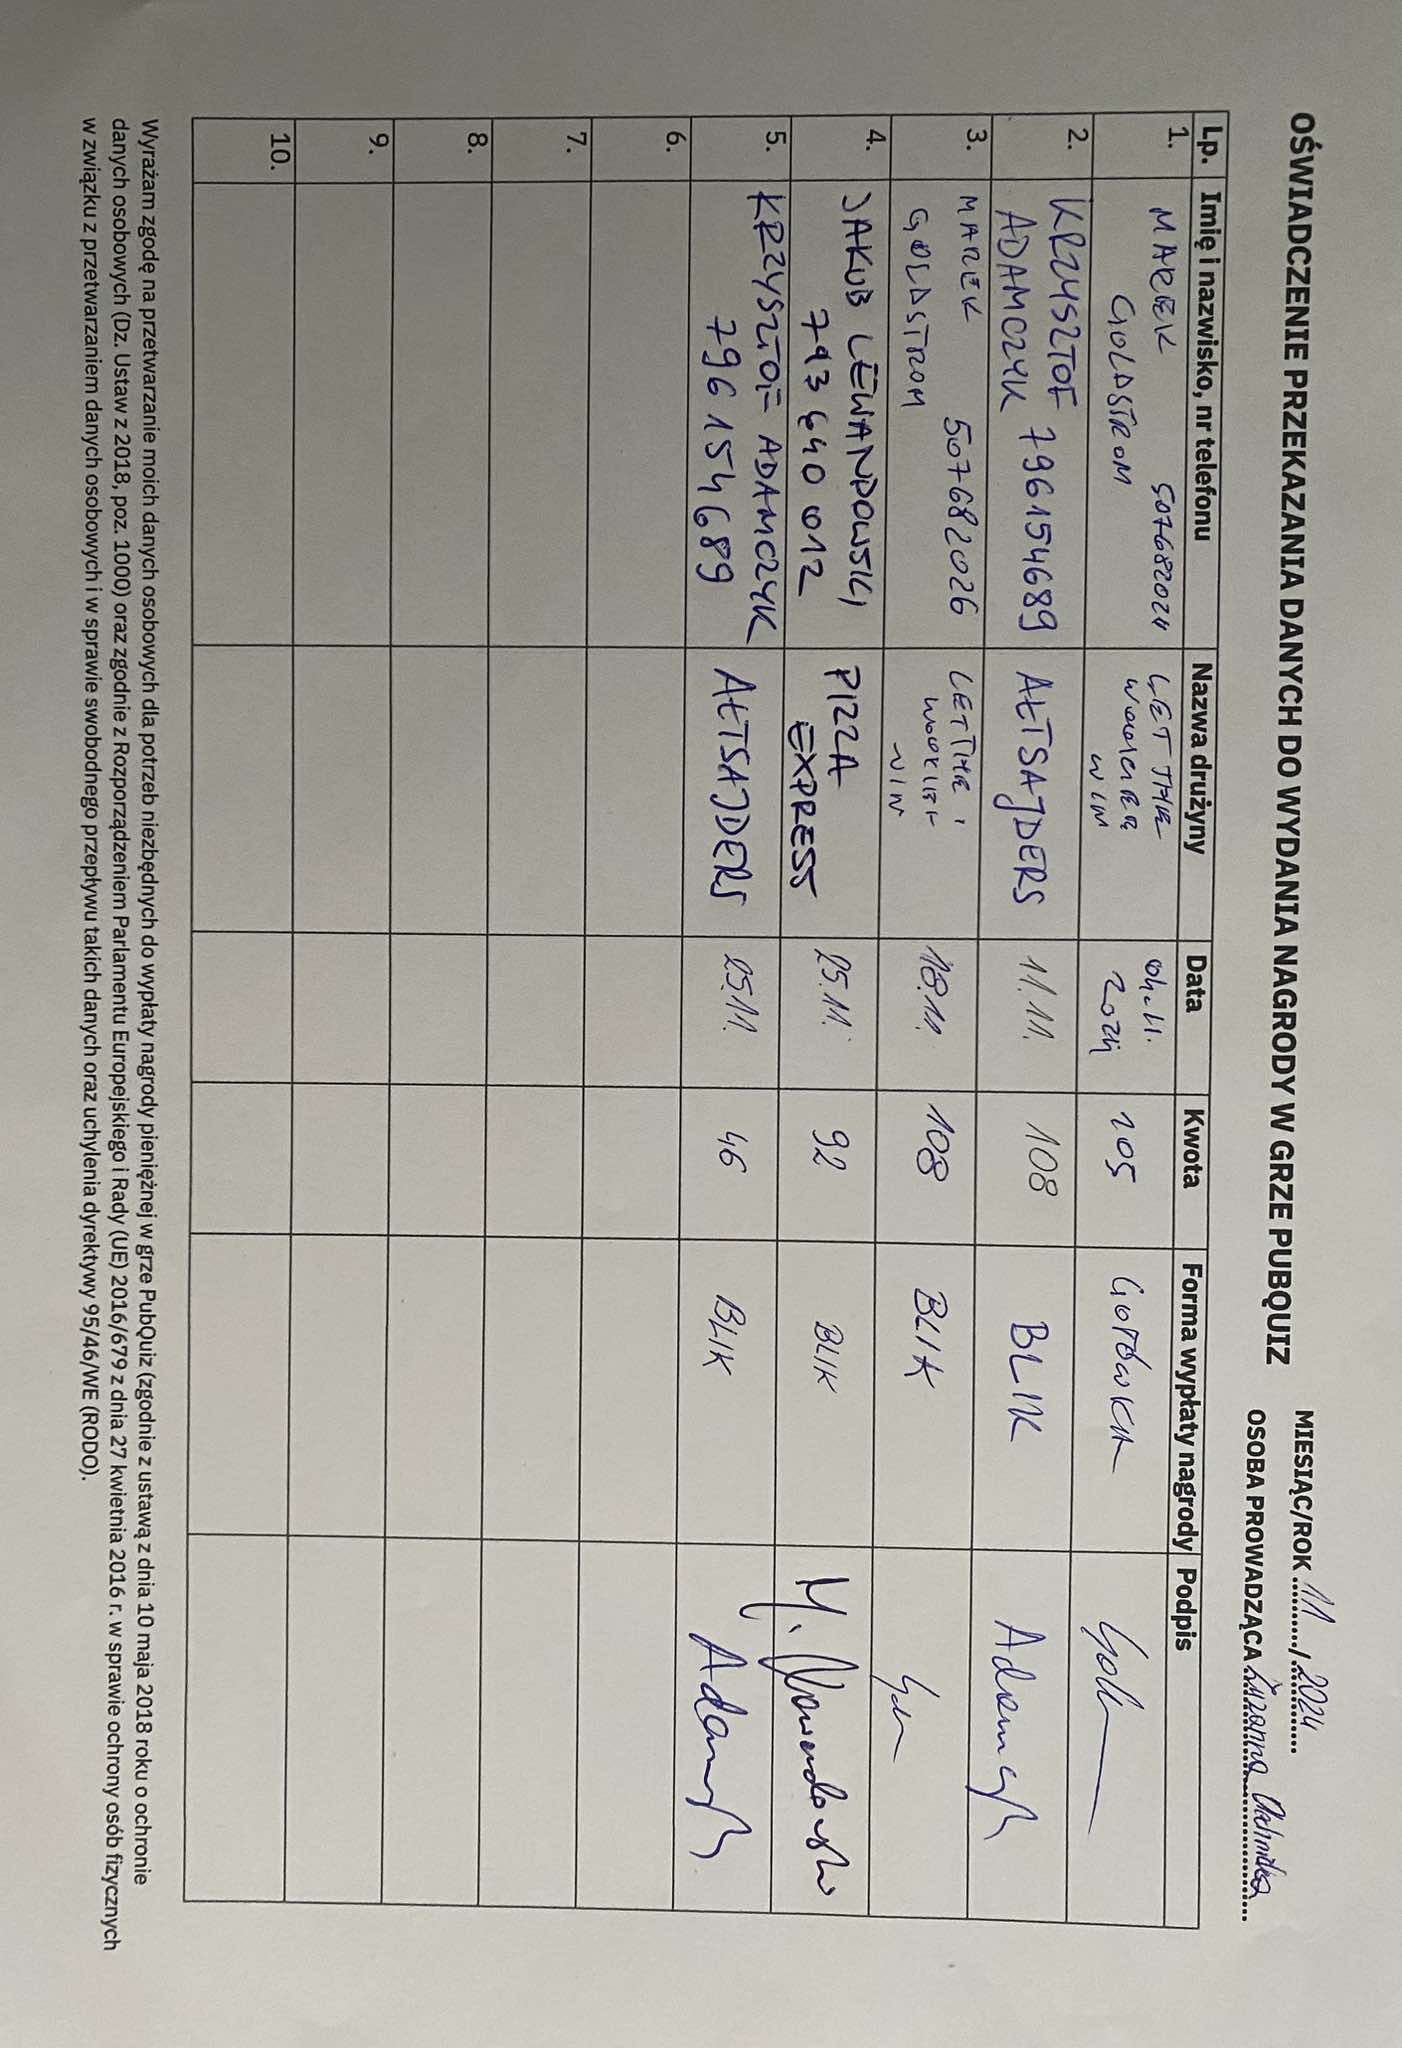 OŚWIADCZENIE PRZEKAZANIA DANYCH DO WYDANIA NAGRODY W GRZE PUBQUIZ
MIESIĄC/ROK 11 / 2024
OSOBA PROWADZĄCA Zuzanna
Lp. Imię i nazwisko, nr telefonu Nazwa drużyny Data Kwota Forma wypłaty nagrody Podpis
1. MAREK 507682024 LET THE 04.11. 105 GOTÓWKA
GOLDSTROM WOOKIEE 2024
WIN
2. KRZYSZTOF 796154689 AŁTSAJDERS 11.11. 108 BLIK Adamczyk
ADAMCZYK
3. MAREK 507682026 LET THE 18.11. 108 BLIK
GOLDSTROM WOOKIEE
WIN
4. JAKUB LEWANDOWSKI PIZZA 25.11. 92 BLIK
793 640 012 EXPRESS
5. KRZYSZTOF ADAMCZYK AŁTSAJDERS 25.11. 46 BLIK Adamczyk
796 154 689
6.
7.
8.
9.
10.
Wyrażam zgodę na przetwarzanie moich danych osobowych dla potrzeb niezbędnych do wypłaty nagrody pieniężnej w grze PubQuiz (zgodnie z ustawą z dnia 10 maja 2018 roku o ochronie
danych osobowych (Dz. Ustaw z 2018, poz. 1000) oraz zgodnie z Rozporządzeniem Parlamentu Europejskiego i Rady (UE) 2016/679 z dnia 27 kwietnia 2016 r. w sprawie ochrony osób fizycznych
w związku z przetwarzaniem danych osobowych i w sprawie swobodnego przepływu takich danych oraz uchylenia dyrektywy 95/46/WE (RODO).